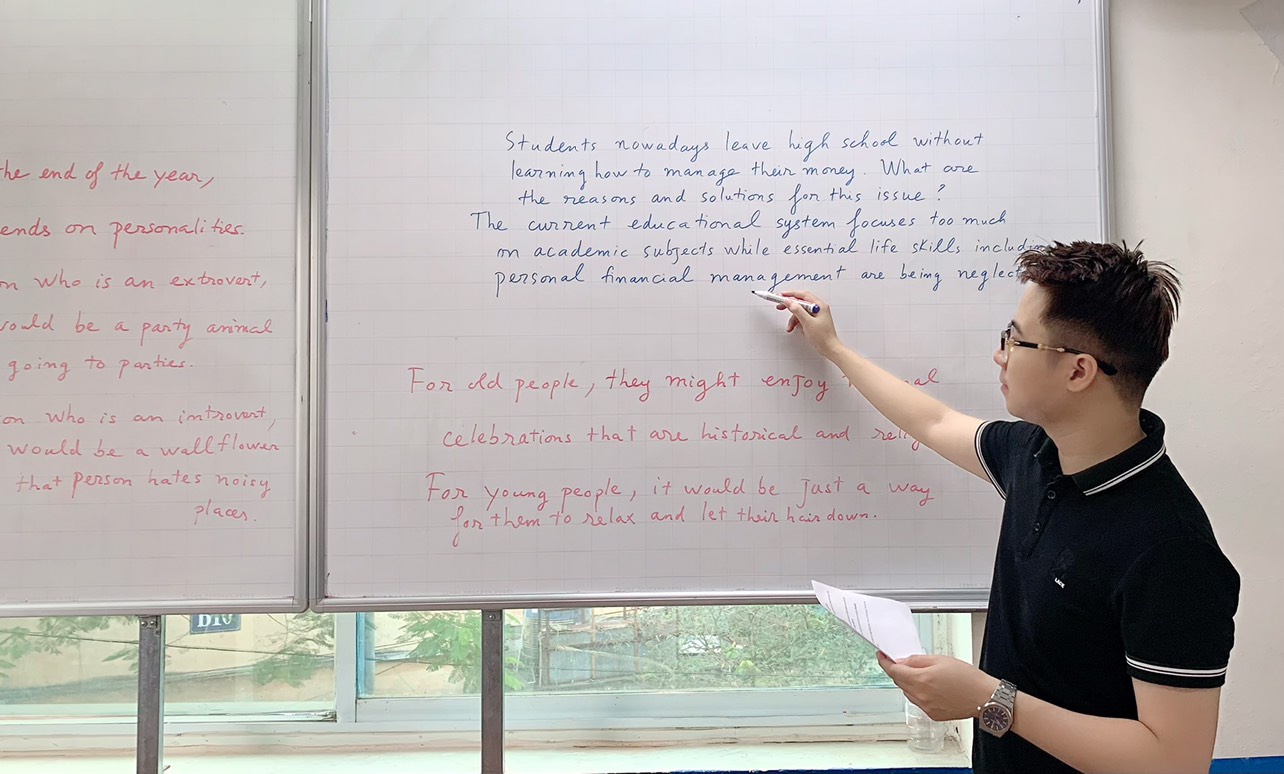 the end of the year,
ends on personalities.
on who is an extrovert,
would be a party animal
going to parties.
on who is an introvert,
would be a wallflower
that person hates noisy
places.
Students nowadays leave high school without
learning how to manage their money. What are
the reasons and solutions for this issue?
The current educational system focuses too much
on academic subjects while essential life skills includin
personal financial management are being neglect
For old people, they might enjoy
celebrations that are historical and
For young people, it would be just a way
for them to relax and let their hair down.
B10